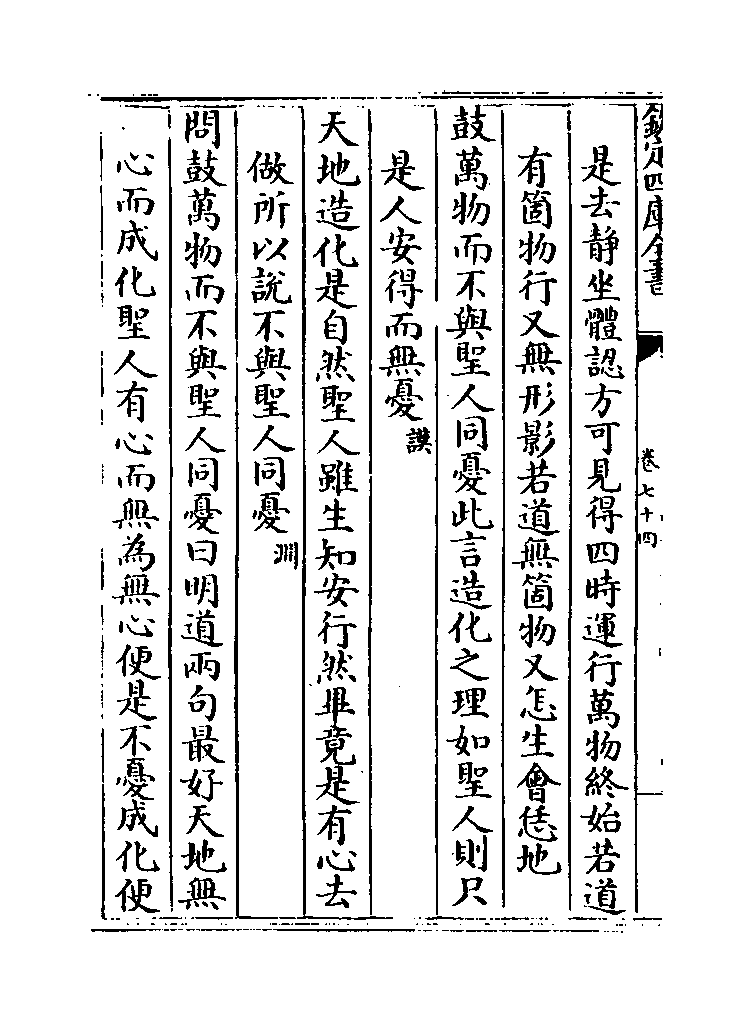 欽定四庫全書
卷七十四
是去静坐體認方可見得四時運行萬物終始若道
有箇物行又無形影若道無箇物又怎生會恁地
鼓萬物而不與聖人同憂此言造化之理如聖人則只
是人安得而無憂謨
天地造化是自然聖人雖生知安行然畢竟是有心去
做所以說不與聖人同憂淵
問鼓萬物而不與聖人同憂曰明道兩句最好天地無
心而成化聖人有心而無為無心便是不憂成化便